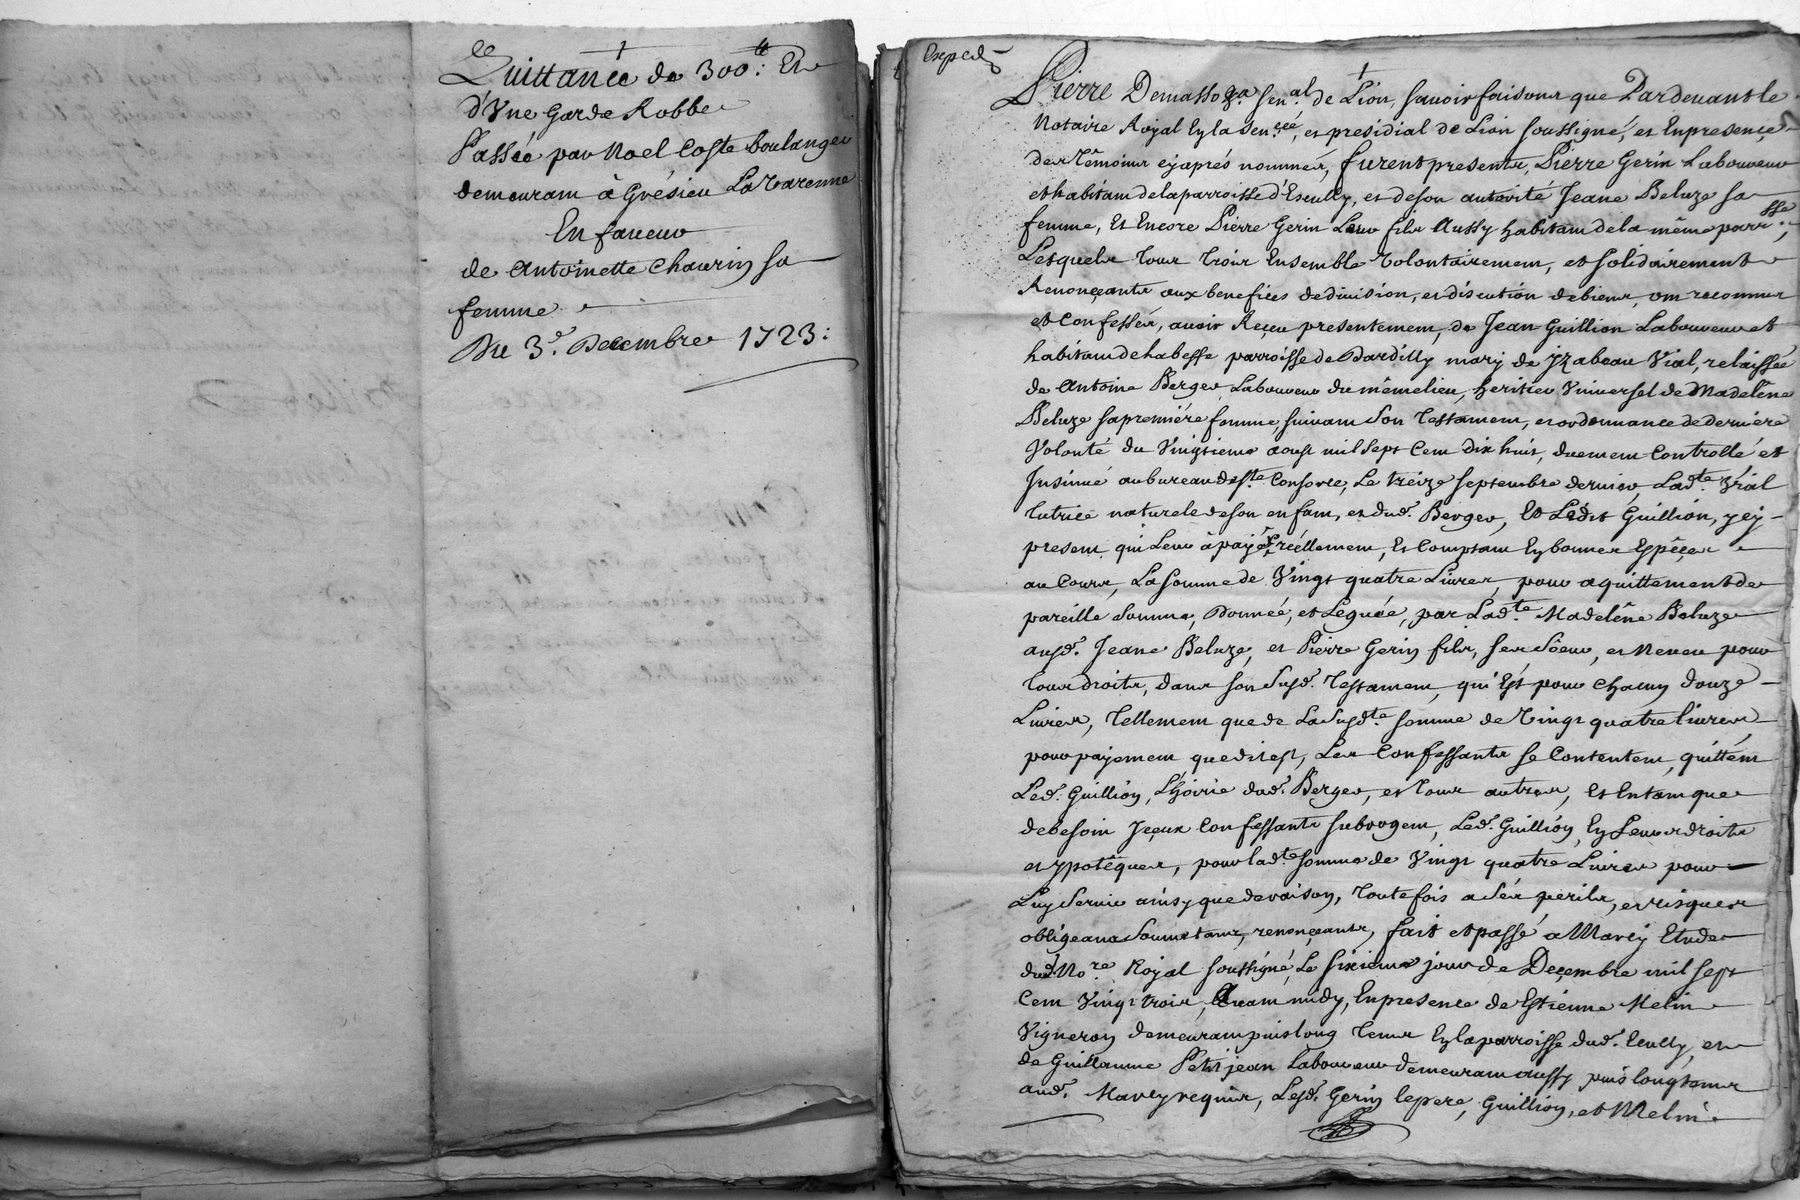 Quittance de 300  tt. Et
d'Vne Garde Robbe
Passée par Noel Coste boulanger
demeurant à Grésieu La Varenne
En faveur
de Antoinette Chavrin sa
femme
Du 3e. Decembre 1723:
Exped
Pierre Demasso ga. senal. de Lion, savoir faisons que Pardevant le
Notaire Royal En la Senceé, et presidial de Lion soussigné, et En presence
des têmoins cy aprés nommés, furent presents, Pierre Gerin Laboureur
et habitant de la parroisse d'Escully, et de son autorité Jeane Beluze sa
femme, Et Encore Pierre Gerin Leur fils Aussy habitant de la même parrsse;
Lesquels tous trois Ensemble Volontairement, et solidairement
Renonçants aux benefices de division, et discution de biens, ont reconnus
et Confessés, avoir Reçeu presentement, de Jean Guillion Laboureur et
habitant de habesse parroisse de Dardilly mary de jzabeau Vial, relaissée
de Antoine Berger Laboureur du même lieu, heritier Vniversel de Madelêne
Beluze sa premiére femme, suivant son Testament, et ordonnance de derniére
Volonté du Vingtieme aoust mil sept Cent dix huit, duement Controllé et
Insinué au bureau de ste. Consorce, Le treize septembre dernier, Ladte. Vial
tutrice naturele de son enfant, et dud. Berger, Et Ledit Guillion, jcy
present, qui Leur à payé réellement, Et Comptant En bonnes Espêçes
au Cours, La somme de Vingt quatre Livres, pour aquittement de
pareille somme, Donnée, et Leguée, par Ladte. Madelêne Beluze
ausd. Jeane Beluze, et Pierre Gerin fils, ses sœur, et Neveu pour
tous droits, dans son susd. Testament, qui Est pour Chacun douze
Livres, Tellement que de La susdte. somme de Vingt quatre livres
pour payement que dit est, Les Confessants se Contentent, quittent
Led. Guillion, L'hoirie dud. Berger, et tous autres, Et En tant que
de besoin Jçeux Confessants subrogent, Led. Guillion, En Leurs droits
et ypotêques, pour ladte. somme de Vingt quatre Livres pour
Luy servir ainsy que de raison, Toutefois a sés perils, et risques
obligeans soumetans, renonçants, fait et passé a Marcy Etude
dud. Nore. Royal soussigné, Le sixieme jour de Deçembre mil sept
Cent Vingt trois, Avant midy, En presence de Estienne Melin
Vigneron demeurant puis long tems En la parroisse dud. Ecully, et
de Guillaume Petitjean Laboureur demeurant aussy puis longtems
aud. Marcy requis, Lesd. Gerin le pere, Guillion, et Melin